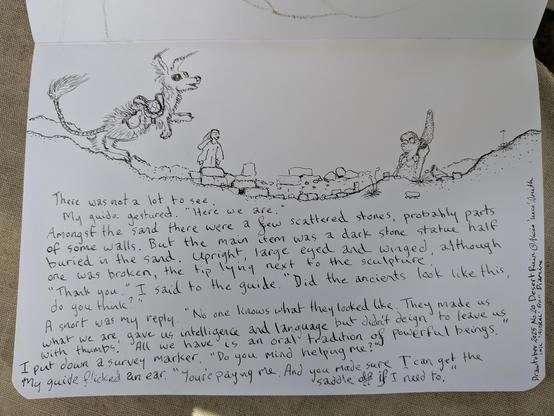 There was not a lot to see.
My guide gestured. "Here we are."
Amongst the sand there were a few scattered stones, probably parts
of some walls. But the main item was a dark stone statue half
buried in the sand. Upright, large eyed and winged, although
one was broken, the tip lying next to the sculpture.
"Thank you." I said to the guide. "Did the ancients look like this,
do you think?"
A snort was my reply. "No one knows what they looked like. They made us
what we are, gave us intelligence and language but didn't deign to leave us
with thumbs. All we have is an oral tradition of powerful beings."
I put down a survey marker. "Do you mind helping me?"
My guide flicked an ear. "You're paying me. And you made sure I can get the
saddle off if I need to."
Drawtober 2025 No.20 Desert Ruin